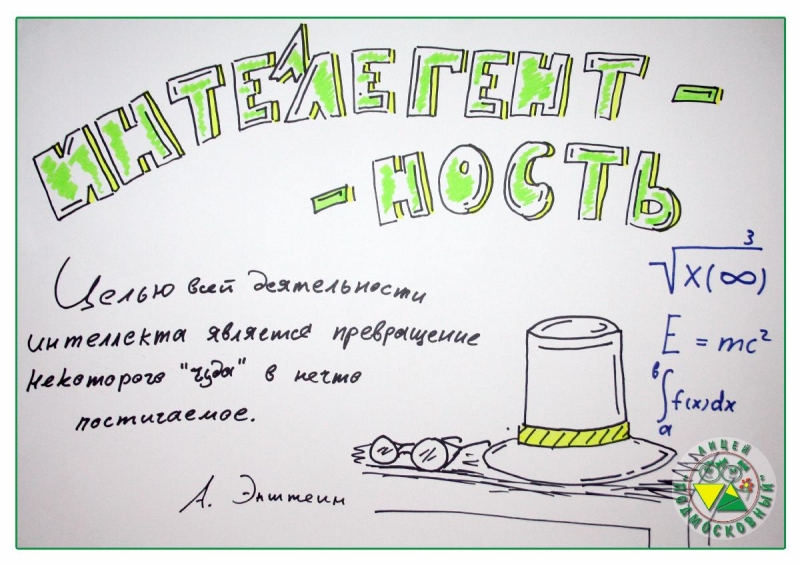 ИНТЕЛЛЕГЕНТ -
- НОСТЬ
Целью всей деятельности
интеллекта является превращение
некоторого "чуда" в нечто
постигаемое.
А. Энштеин
3
√X(∞)
E = mc²
в
∫f(x)dx
а
ЛИЦЕЙ
"ПОДМОСКОВНЫЙ"